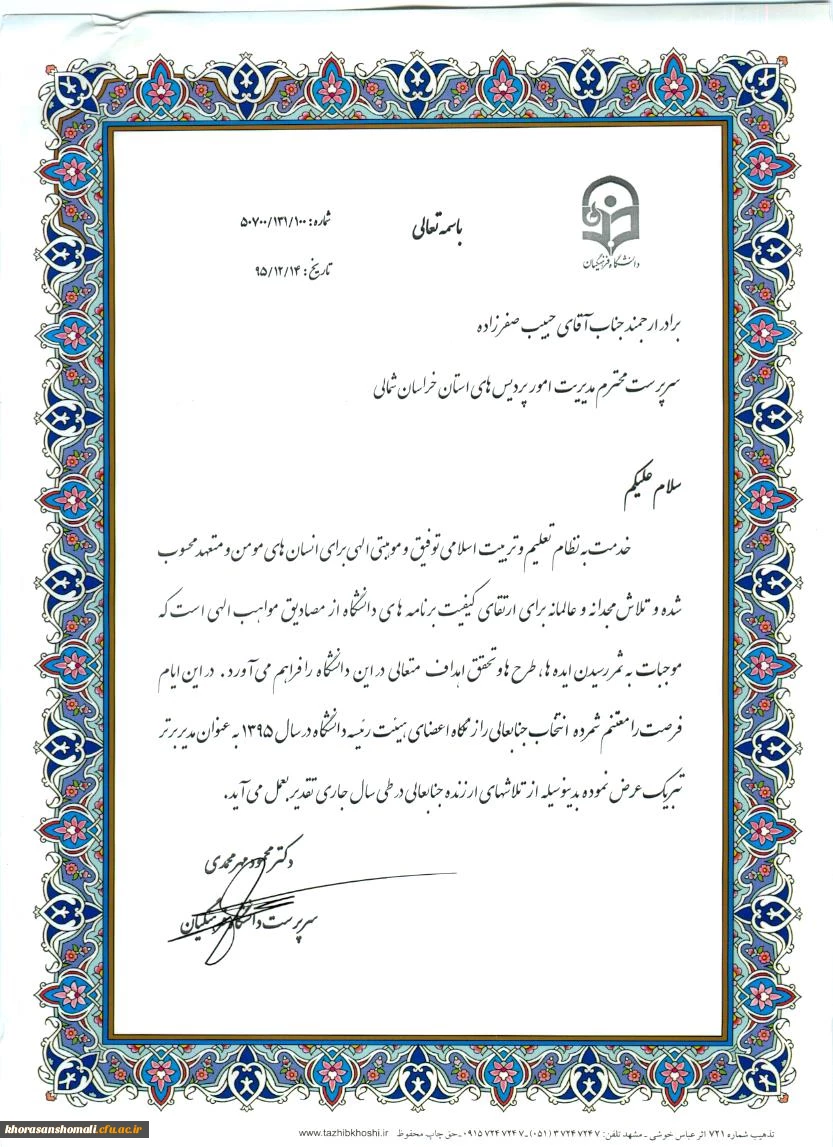 باسمه تعالی
شماره: ۵۰۷۰۰/۱۳۱/۱۰۰
تاریخ: ۹۵/۱۲/۱۴
دانشگاه فرهنگیان
برادر ارجمند جناب آقای حبیب صفرزاده
سرپرست محترم مدیریت امور پردیس های استان خراسان شمالی
سلام علیکم
خدمت به نظام تعلیم و تربیت اسلامی توفیق و موهبتی الهی برای انسان های مومن و متعهد محسوب
شده و تلاش مجدانه و عالمانه برای ارتقای کیفیت برنامه های دانشگاه از مصادیق مواهب الهی است که
موجبات به ثمر رسیدن ایده ها، طرح ها و تحقق اهداف متعالی در این دانشگاه را فراهم می آورد. در این ایام
فرصت را مغتنم شمرده انتخاب جنابعالی را از نگاه اعضای هیئت رئیسه دانشگاه در سال ۱۳۹۵ به عنوان مدیر برتر
تبریک عرض نموده بدینوسیله از تلاشهای ارزنده جنابعالی در طی سال جاری تقدیر بعمل می آید.
دکتر محمود مهرمحمدی
سرپرست دانشگاه فرهنگیان
تذهیب شماره ۷۲۱ اثر عباس خوشی - مشهد تلفن: ۳۷۲۴۷۲۴۷ (۰۵۱) - ۰۹۱۵۷۲۴۷۲۴۷ - حق چاپ محفوظ www.tazhibkhoshi.ir
khorasanshomali.cfu.ac.ir